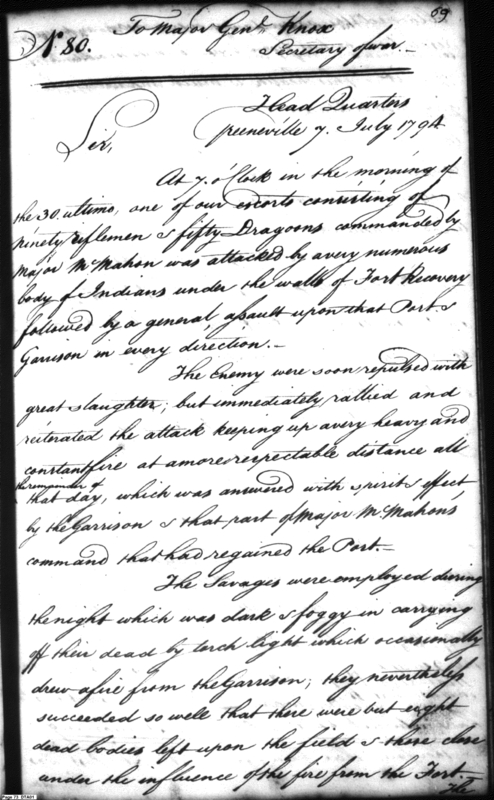 69
No 80.
To Major Genl. Knox
Secretary of war.—
Head Quarters
Greeneville 7. July 1794
Sir,
At 7. o'Clock in the morning of
the 30. ultimo, one of our escorts consisting of
ninety riflemen & fifty Dragoons commanded by
Major McMahon was attacked by a very numerous
body of Indians under the walls of Fort Recovery
followed by a general assault upon that Post &
Garrison in every direction.—
The Enemy were soon repulsed with
great slaughter; but immediately rallied and
reiterated the attack keeping up a very heavy and
constant fire at a more respectable distance all
the remainder of
that day, which was answered with spirit & effect
by the Garrison & that part of Major McMahon's
command that had regained the Post.—
The Savages were employed during
the night which was dark & foggy in carrying
off their dead by torch light which occasionally
drew a fire from the Garrison; they nevertheless
succeeded so well that there were but eight
dead bodies left upon the field & those close
under the influence of the fire from the Fort.—
The